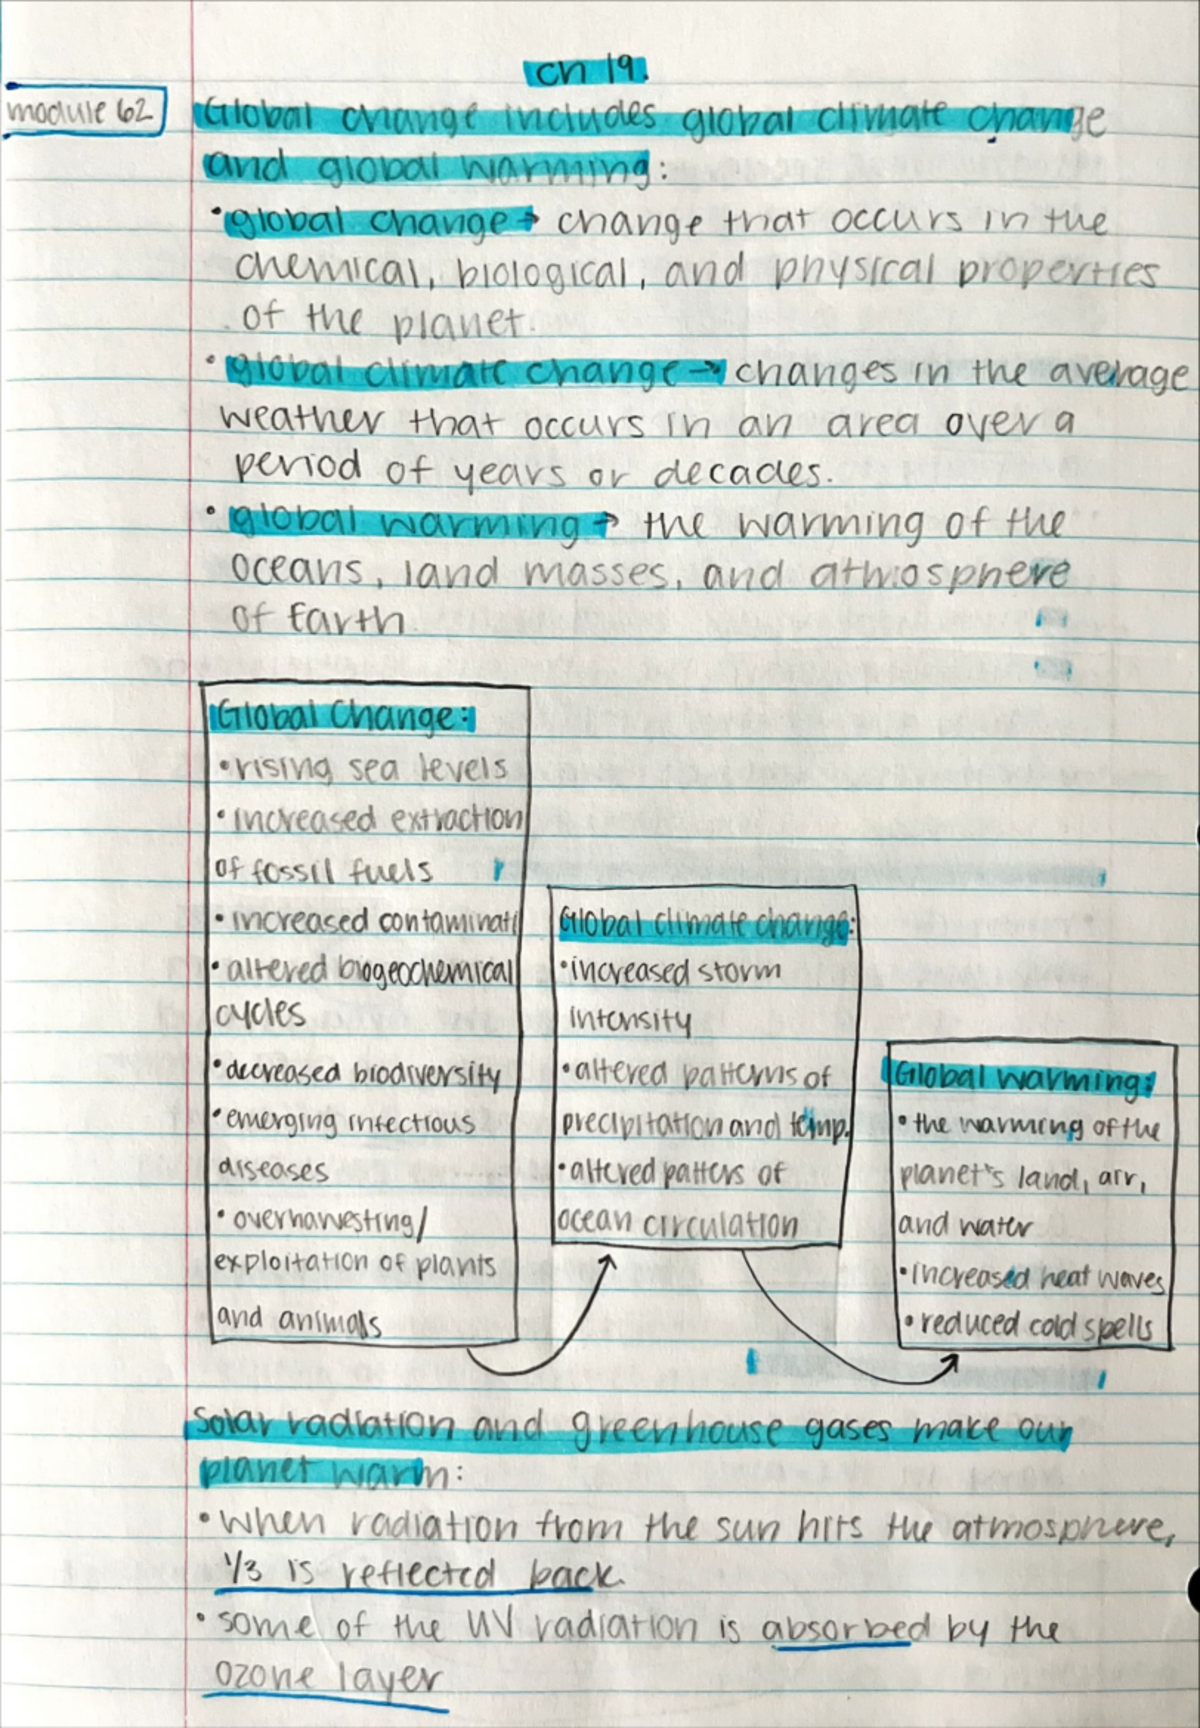 ch 19.
module 62
Global change includes global climate change
and global warming:
•global change → change that occurs in the
chemical, biological, and physical properties
of the planet.
•global climate change → changes in the average
weather that occurs in an area over a
period of years or decades.
•global warming → the warming of the
oceans, land masses, and athmosphere
of Earth.
Global Change:
•rising sea levels
•increased extraction
of fossil fuels
•increased contaminati
•altered biogeochemical
cycles
•decreased biodiversity
•emerging infectious
diseases
•overharvesting/
exploitation of plants
and animals
Global climate change:
•increased storm
intensity
•altered patterns of
precipitation and temp.
•altered patters of
ocean circulation
Global warming:
•the warming of the
planet's land, air,
and water
•increased heat waves
•reduced cold spells
Solar radiation and greenhouse gases make our
planet warm:
•when radiation from the sun hits the atmosphere,
1/3 is reflected back.
•some of the UV radiation is absorbed by the
ozone layer